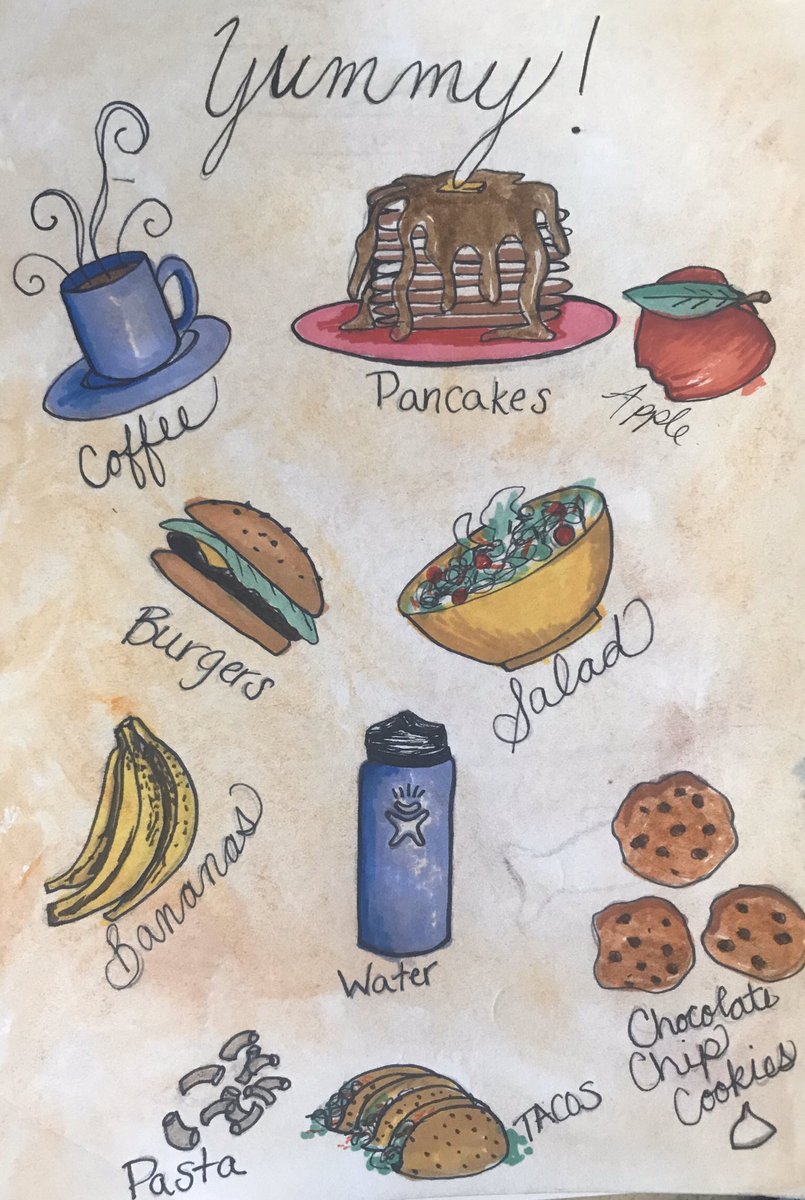 Yummy!
Coffee
Pancakes
Apple
Burgers
Salad
Bananas
Water
Chocolate
Chip
Cookies
Pasta
TACOS